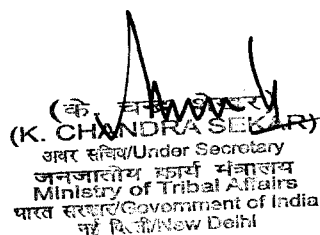 (के. चन्द्र शेखर)
(K. CHANDRA SEKAR)
अवर सचिव/Under Secretary
जनजातीय कार्य मंत्रालय
Ministry of Tribal Affairs
भारत सरकार/Government of India
नई दिल्ली/New Delhi